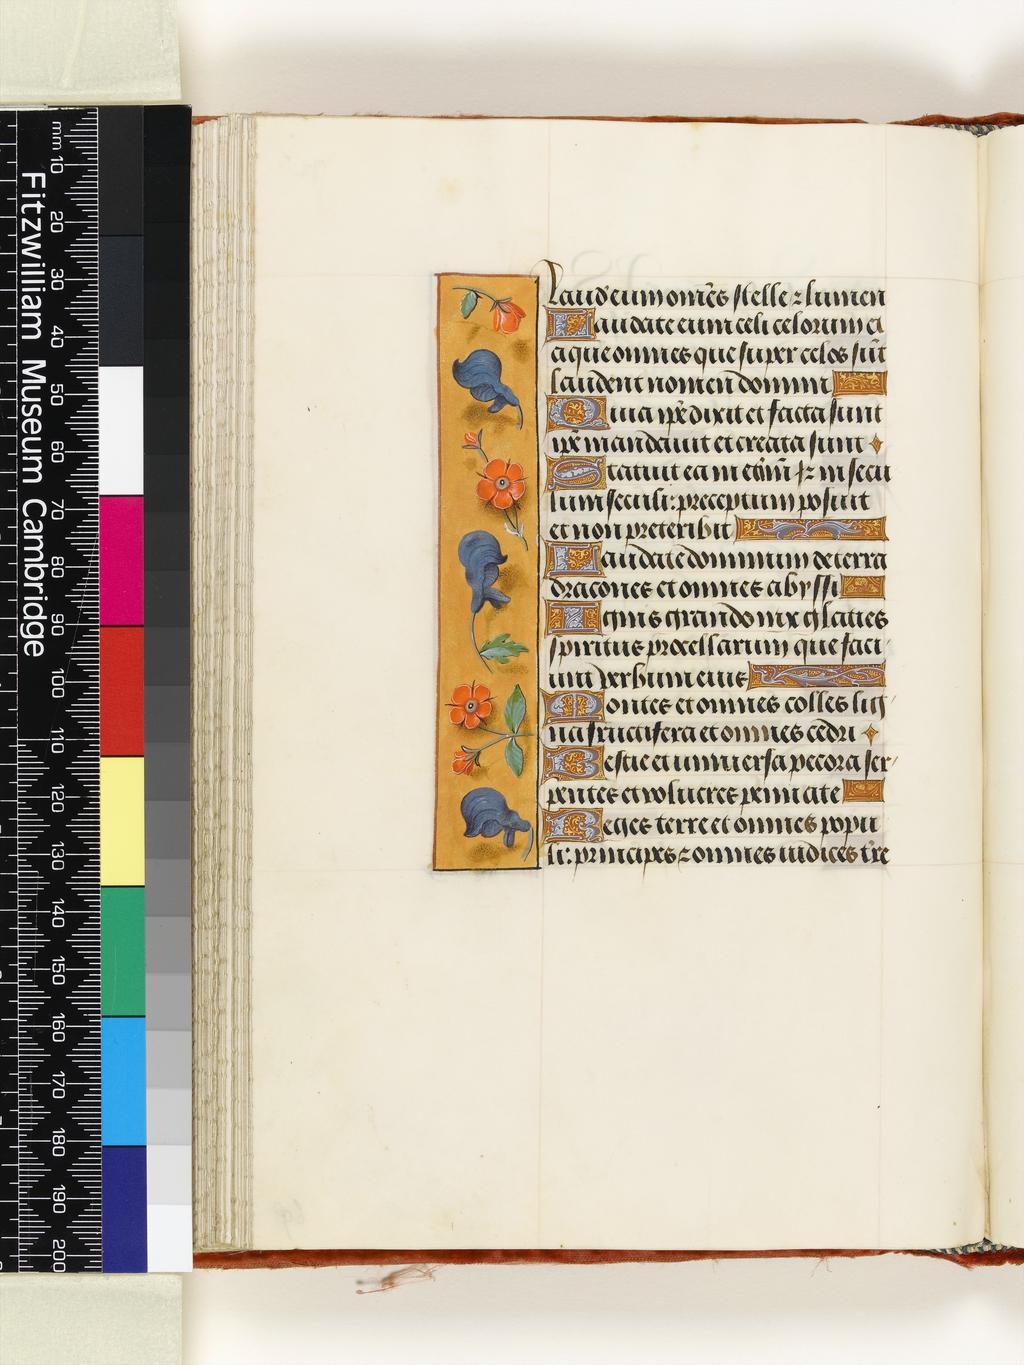 Fitzwilliam Museum Cambridge
mm 10 20 30 40 50 60 70 80 90 100 110 120 130 140 150 160 170 180 190 200
Laud eum om̄es stelle ⁊ lumen
Laudate eum celi celorum et
aque omnes que super celos sūt
laudent nomen domini
Quia ip̄e dixit et facta sunt
ip̄e mandauit et creata sunt
Statuit ea in et̄nū ⁊ in secu
lum seculi: preceptum posuit
et non preteribit
Laudate dominum de terra
dracones et omnes abyssi
Ignis grando nix glaties
spiritus procellarum que faci
unt verbum eius
Montes et omnes colles lig
na fructifera et omnes cedri
Bestie et uniuersa pecora ser
pentes et volucres pennate
Reges terre et omnes popu
li: principes ⁊ omnes iudices t̄re